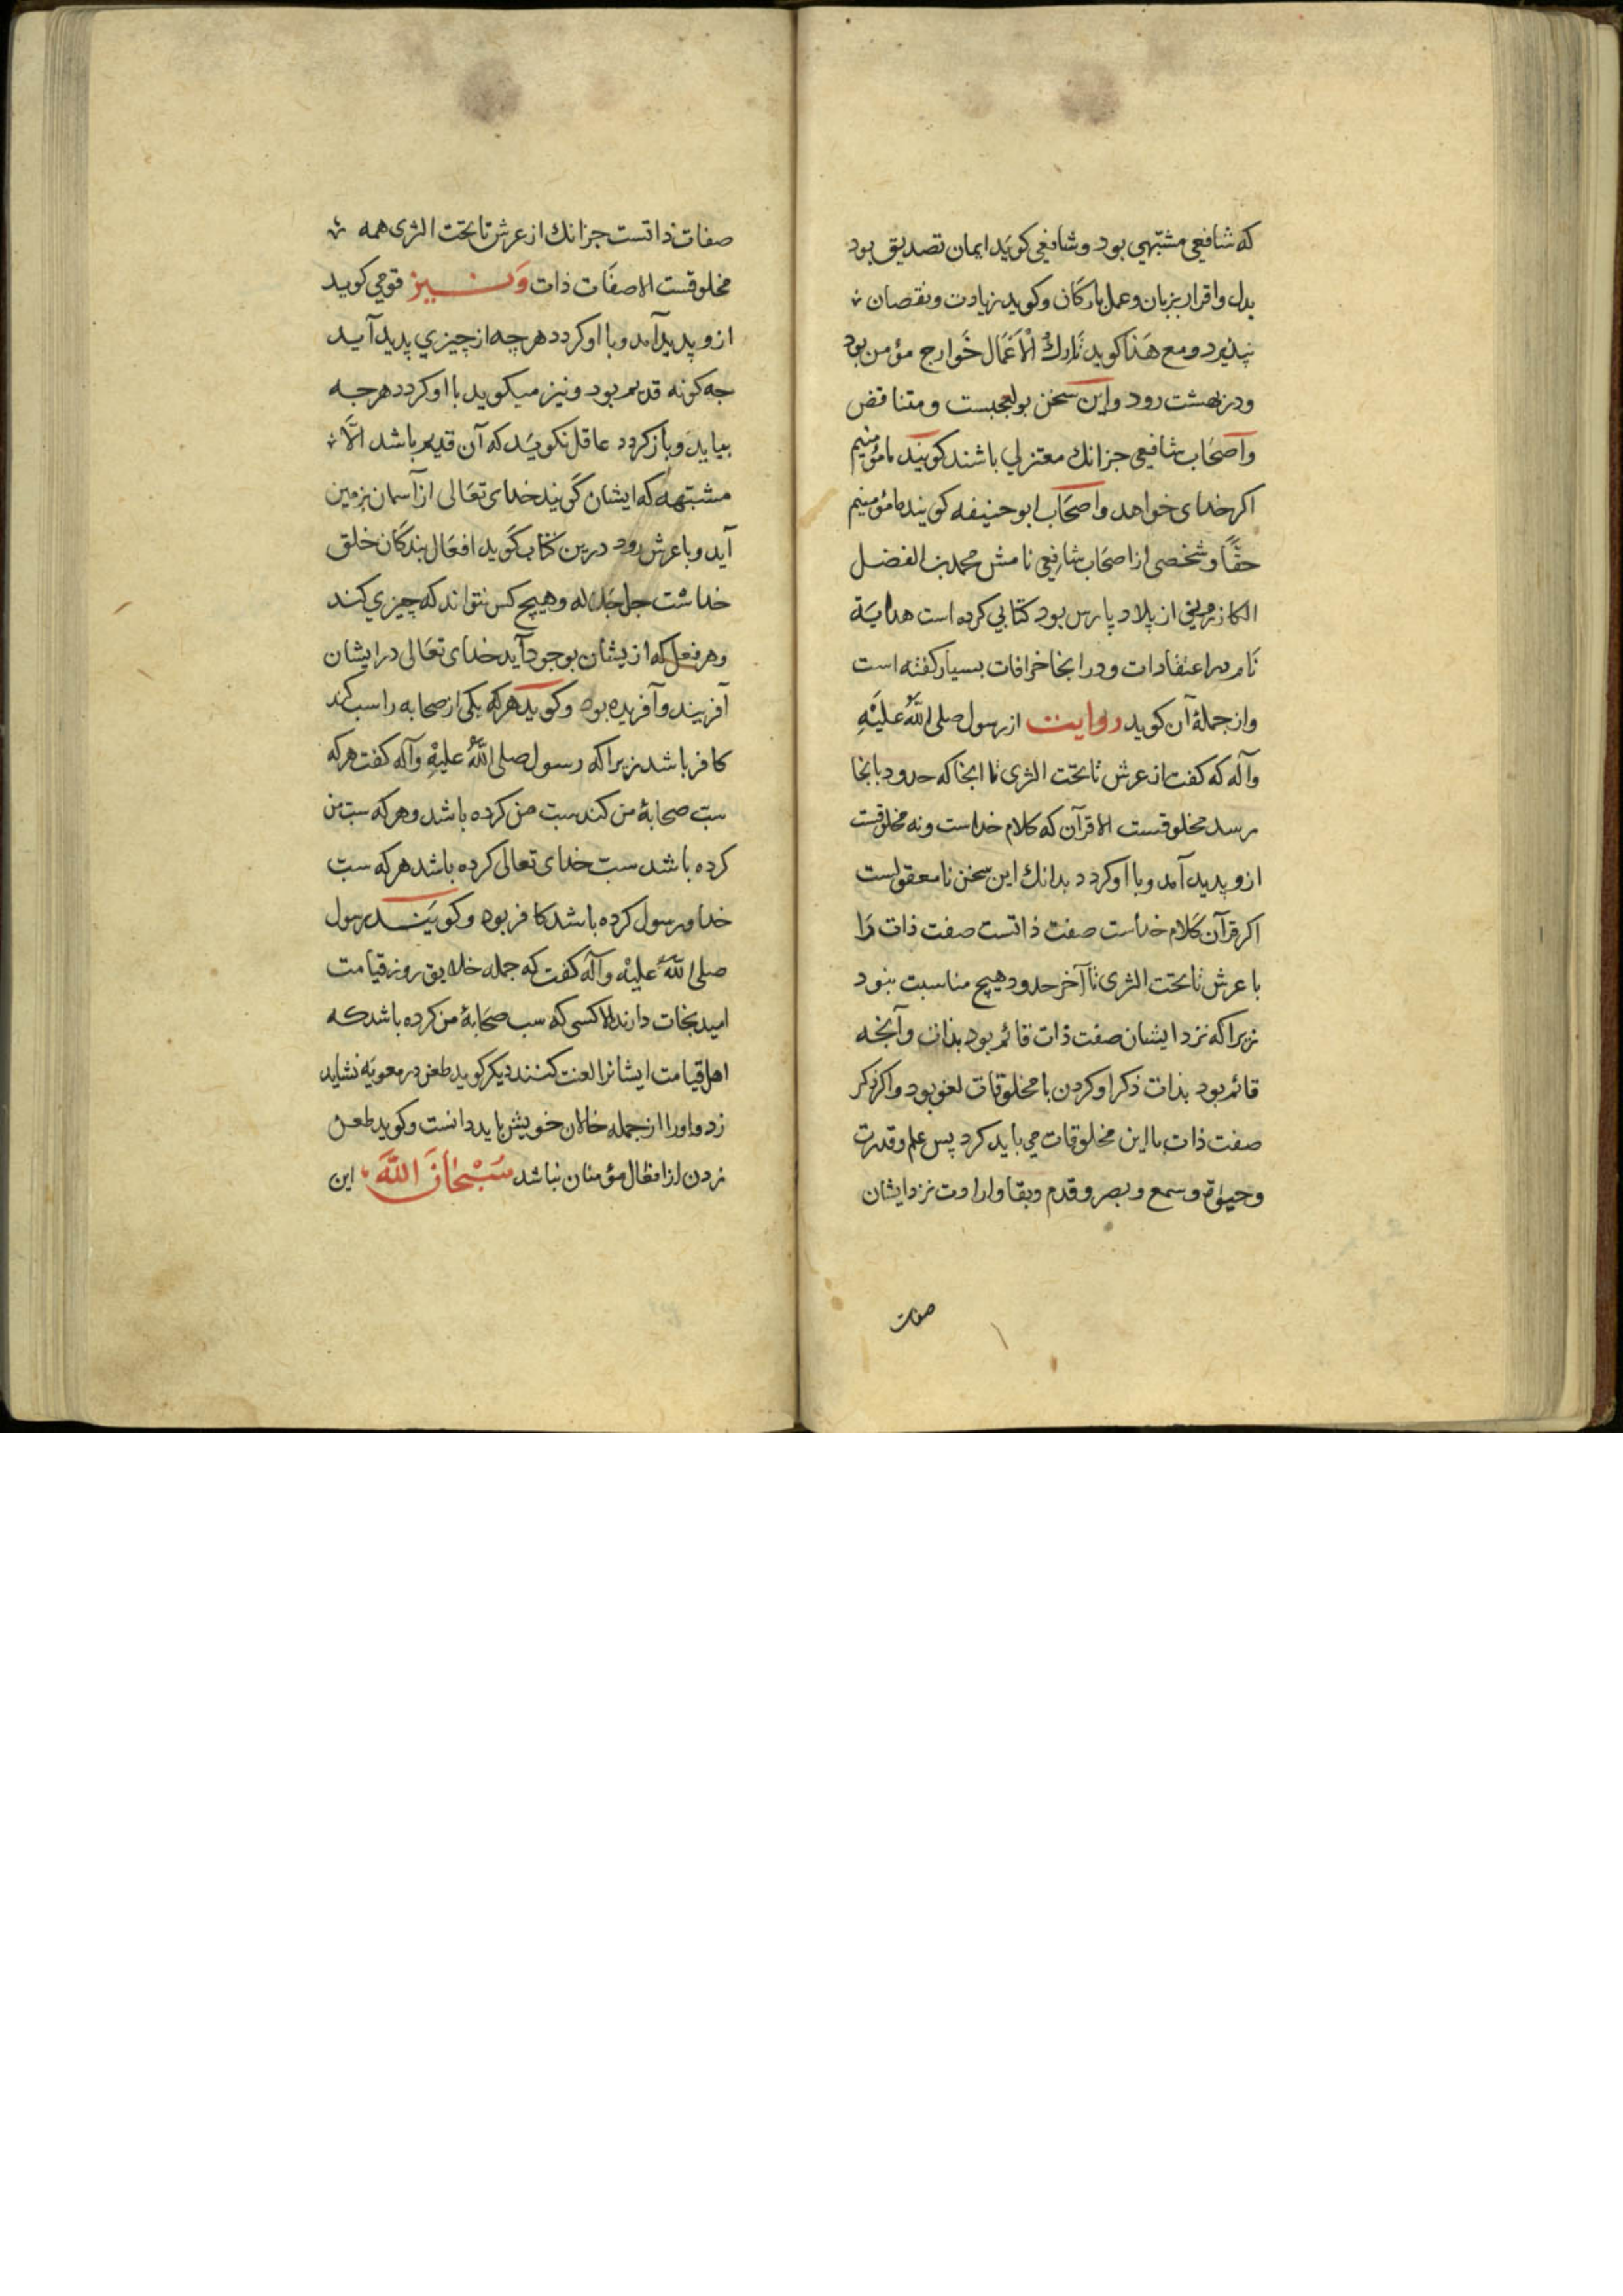 که شافعی مشبّهی بود و شافعی کوید ایمان تصدیق بود
بدل و اقرار بزبان و عمل بارکان و کوید زیادت و نقصان
پذیرد و مع هذا کوید تارك الاعمال خوارج مؤمن بود
و در بهشت رود و این سخن بوالعجبست و متناقض
و اصحاب شافعی جزانك معتزلی باشند کویند ما مؤمنیم
اکر خدای خواهد و اصحاب ابو حنیفه کویند ما مؤمنیم
حقّا و شخصی از اصحاب شافعی نامش محمد بن الفضل
از بلاد پارس بود کتابی کرده است هدایة
نام در اعتقادات و در انجا خرافات بسیار کفته است
و از جملهٔ آن کوید روایت از رسول صلی اللهُ علیهِ
وآله که کفت از عرش تا تحت الثری تا انجا که حدود بانجا
رسد مخلوقست الا قرآن که کلام خداست و نه مخلوقست
ازو پدید آمد و با او کردد بدانك این سخن نامعقولست
اکر قرآن کلام خداست صفت ذاتست صفت ذات را
با عرش تا تحت الثری تا آخر حدود هیچ مناسبت نبود
زیرا که نزد ایشان صفت ذات قائم بود بذات و آنجه
قائم بود بذات ذکر او کردن با مخلوقات لغو بود و اکر ذکر
صفت ذات با این مخلوقات می باید کرد پس علم و قدرت
و حیوة و سمع و بصر و قدم و بقا و ارادت نزد ایشان
صفات
صفات ذاتست جزانك از عرش تا تحت الثری همه
مخلوقست الا صفات ذات و نیز قومی کوید
ازو پدید آمد و با او کردد هر چه از چیزی پدید آید
جه کونه قدیم بود و نیز میکوید با او کردد هرجه
بیاید و باز کردد عاقل نکوید که آن قدیم باشد الّا
مشبّهه که ایشان کویند خدای تعالی از آسمان بزمین
آید و با عرش رود درین کتاب کوید افعال بندکان خلق
خداست جل جلاله و هیچ کس نتواند که چیزی کند
و هر فعل که ازیشان بوجود آید خدای تعالی در ایشان
آفریند و آفریده بود و کوید هر که یکی از صحابه را سب کند
کافر باشد زیرا که رسول صلی اللهُ علیهِ وآله کفت هر که
سبّ صحابهٔ من کند سب من کرده باشد و هر که سب من
کرده باشد سب خدای تعالی کرده باشد هر که سب
خدا و رسول کرده باشد کافر بود و کویند رسول
صلی اللهُ علیهْ وآله کفت که جمله خلایق روز قیامت
امید نجات دارند الا کسی که سب صحابهٔ من کرده باشد که
اهل قیامت ایشانرا لعنت کنند دیکر کوید طعن در معویه نشاید
زد و اورا از جمله خالان خویش باید دانست و کوید طعن
زدن از افعال مؤمنان نباشد سُبْحَانَ اللهَ این